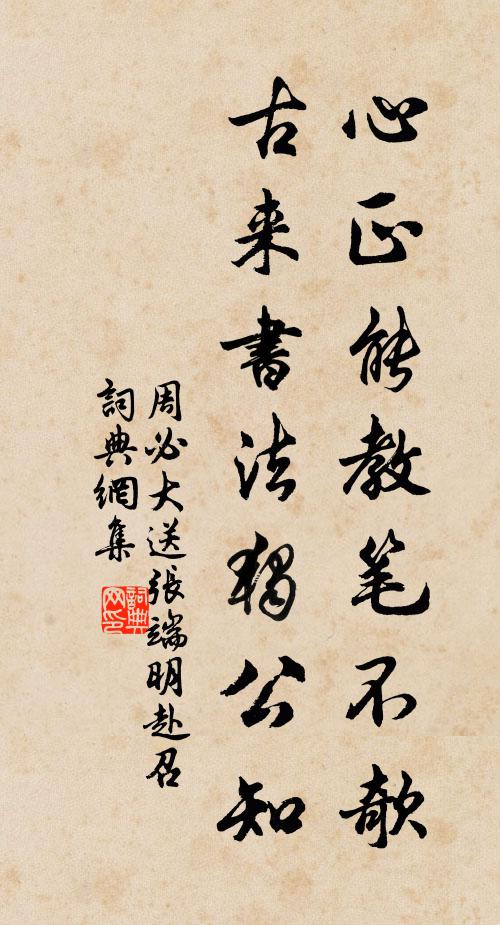 心正能教笔不欹
古来書法獨公知
周必大送張端明赴召
詞典網集
詞典网印